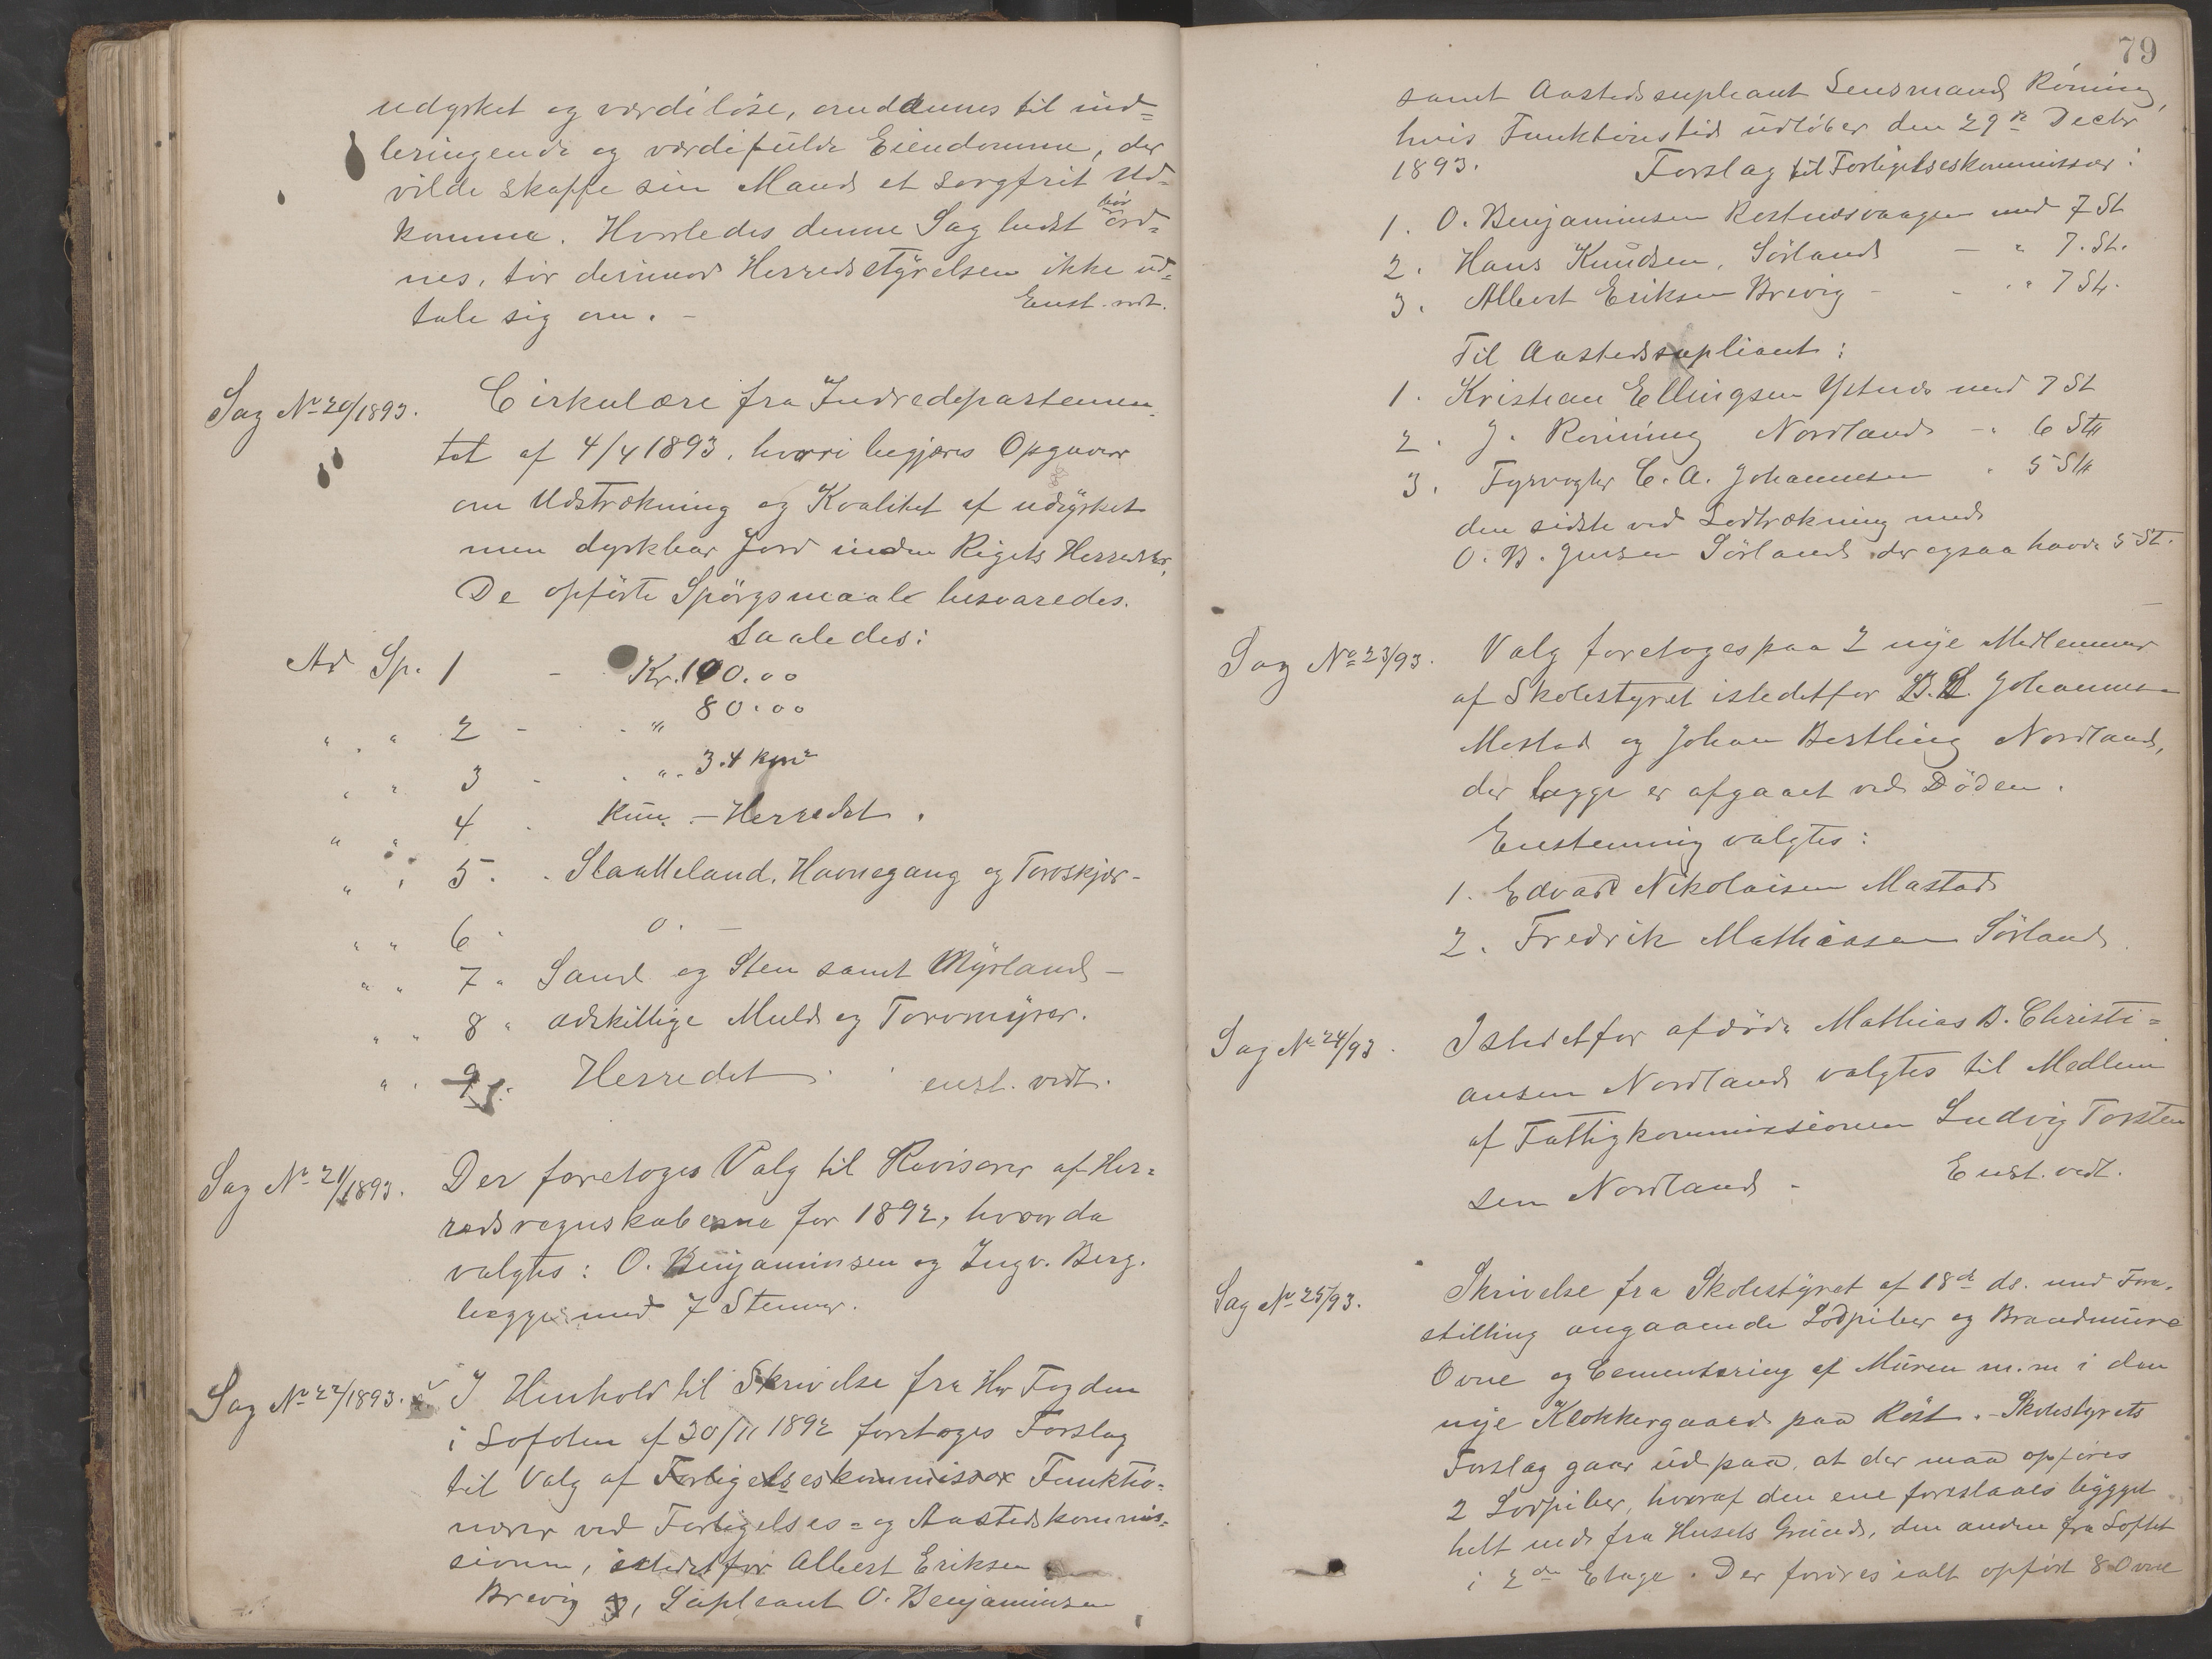 udyrket og værdiløse, omdannes til ind=
bringende og værdifulde Eiendomme, der
vilde skaffe sin Mand et sorgfrit Ud=
komme. Hvorledes denne Sag bedst bør ord=
nes, tør derimod Herredsstyrelsen ikke ud=
tale sig om. - Enst. vedt.
Sag No 20/1893. Cirkulære fra Indredepartemen-
tet af 4/4 1893, hvori begjæres Opgaver
om Udstrækning og Kvalitet af udyrket
men dyrkbar Jord inden Rigets Herreder.
De opførte Spørgsmaale besvaredes.
Saaledes:
Ad Sp. 1 - Kr. 100.00
" . " 2 - . " 80.00
" " 3 - . ". 3.4 km²
" " 4 . Kun. - Herredet.
" " 5. . Slaatteland, Havnegang og Torvskjær-
" " 6 . 0. -
" " 7 " Sand og Sten samt Myrland -
" " 8 " adskillige Muld og Torvmyrer.
" . 9. Herredet . enst. vedt.
Sag No 21/1893. Der foretoges Valg til Revisorer af Her=
redsregnskaberne for 1892, hvor da
valgtes: O. Benjaminsen og Ingv. Berg.
begge med 7 Stemmer.
Sag No 22/1893. I Henhold til Skrivelse fra Hr Fogden
i Lofoten af 30/11 1892 foretoges Forslag
til Valg af Forligelseskommissær Funktio=
nærer ved Forligelses= og Aastedskommis=
sionen, istedetfor Albert Eriksen
Brevig og, Supleant O. Benjaminsen
79
samt Aastedssupleant Lensmand Röning,
hvis Funktionstid udløber den 29de Decbr
1893. Forslag til Forligelseskommissær:
1. O. Benjaminsen Kestnæsvaagen med 7 St
2. Hans Knudsen, Sørland - " 7. St.
3. Albert Eriksen Brevig - - . " 7 St.
Til Aastedssupliant:
1. Kristian Ellingsen Ystnæs med 7 St
2. J. Rönning Nordland - " 6 St
3. Fyrvogter C. A. Johannesen " 5 St
den sidste ved Lodtrækning med
O. B. Jensen Sørland der ogsaa havde 5 St.
Sag No 23/93. Valg foretoges paa 2 nye Medlemmer
af Skolestyret istedetfor B. L. Johannesen
Mostad og Johan Bertling Nordland,
der begge er afgaaet ved Döden.
Enstemmig valgtes:
1. Edvard Nikolaisen Mastad
2. Fredrik Mathiasen Sørland
Sag No 24/93. Istedetfor afdøde Mathias B. Christi=
ansen Nordland valgtes til Medlem
af Fattigkommissionen Ludvig Torsten
sen Nordland - Enst. vedt.
Sag No 25/93. Skrivelse fra Skolestyret af 18de ds. med Fore-
stilling angaaende Lodpiber og Brandmure
Ovne og Cementering af Muren m.m i den
nye Klokkergaard paa Röst. - Skolestyrets
Forslag gaar ud paa, at der maa opføres
2 Lodpiber, hvoraf den ene foreslaaes bygget
helt ned fra Husets Grund, den anden fra Loftet
i 2den Etage. Der foröves ialt opført 8 Ovne